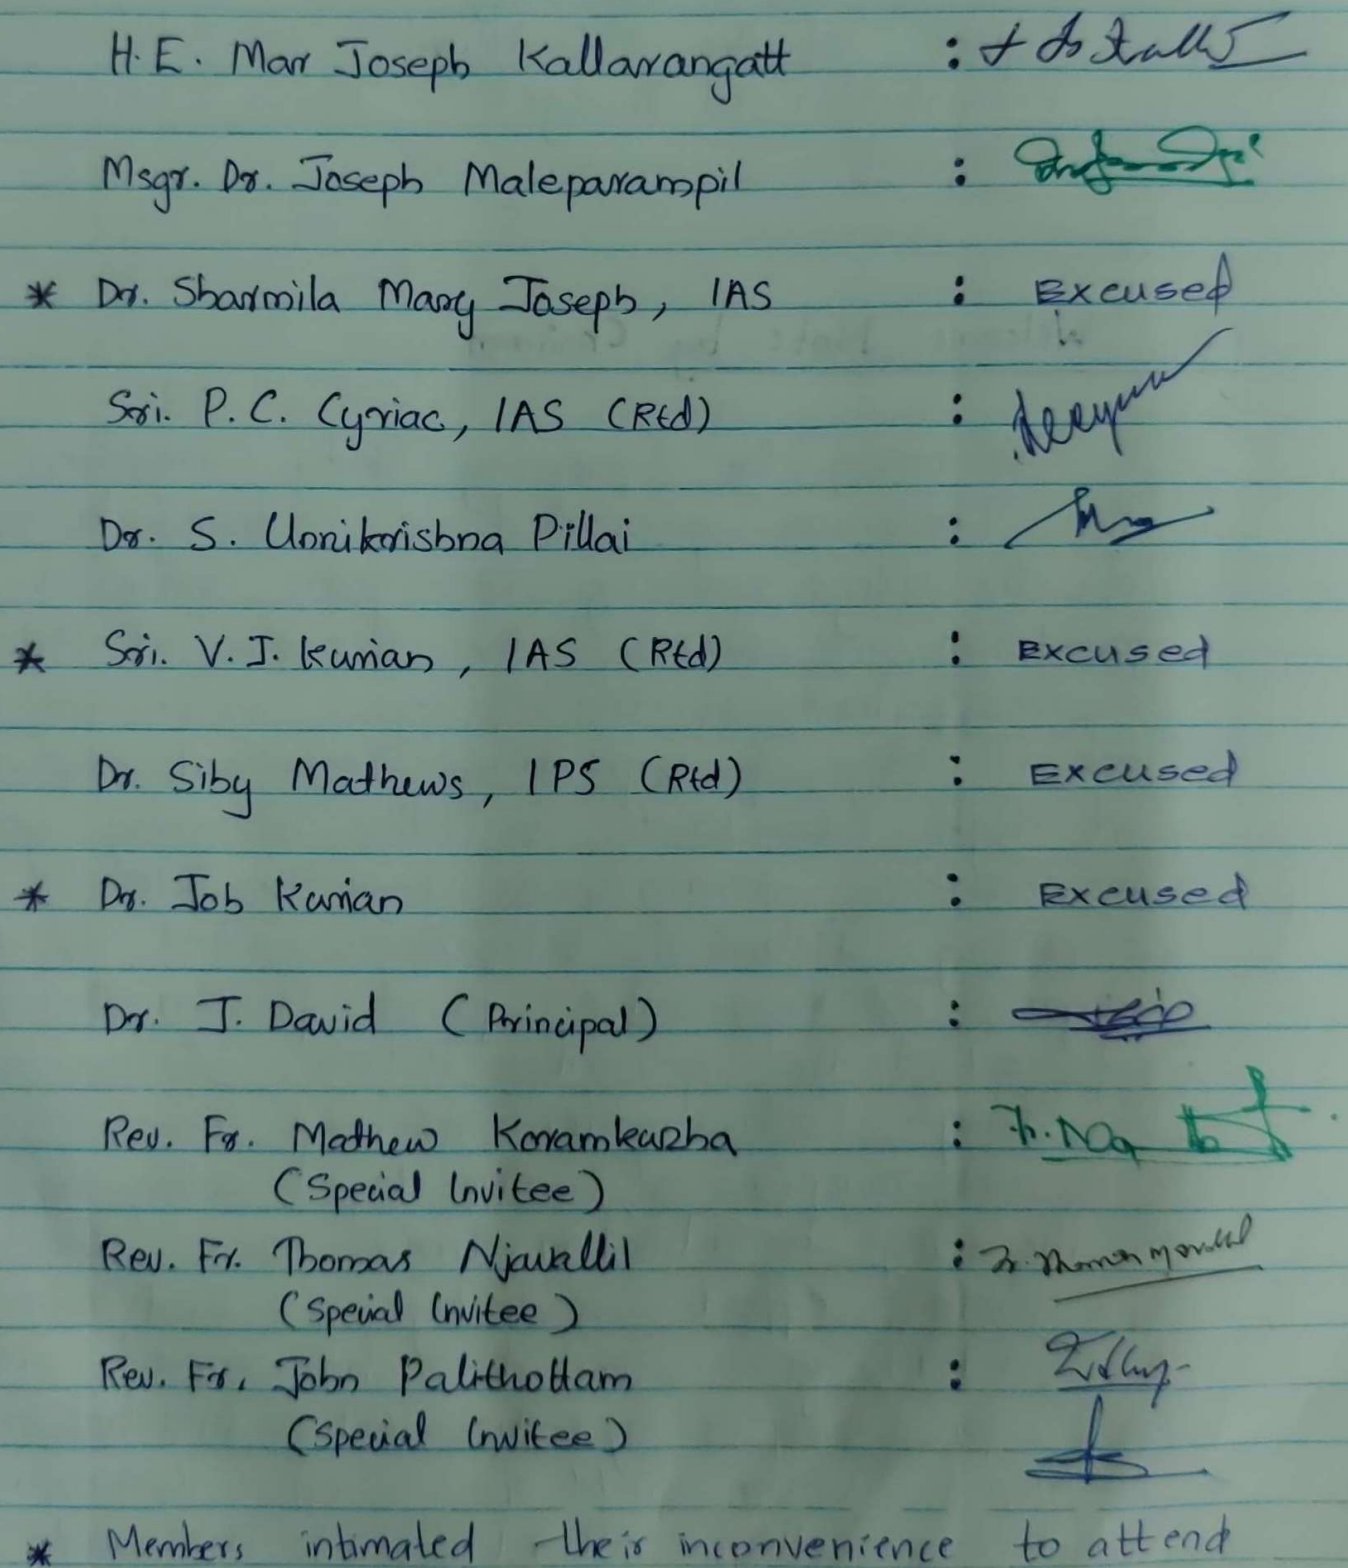 H.E. Mar Joseph Kallarangatt :
Msgr. Dr. Joseph Maleparampil :
* Dr. Sharmila Mary Joseph, IAS : Excused
Sri. P.C. Cyriac, IAS (Rtd) :
Dr. S. Unnikrishna Pillai :
* Sri. V.J. Kurian, IAS (Rtd) : Excused
Dr. Siby Mathews, IPS (Rtd) : Excused
* Dr. Job Kurian : Excused
Dr. J. David (Principal) :
Rev. Fr. Mathew Koramkuzha : Fr.
(Special Invitee)
Rev. Fr. Thomas Njavallil : Fr. Thomas
(Special Invitee)
Rev. Fr. John Palithottam :
(Special Invitee)
* Members intimated their inconvenience to attend